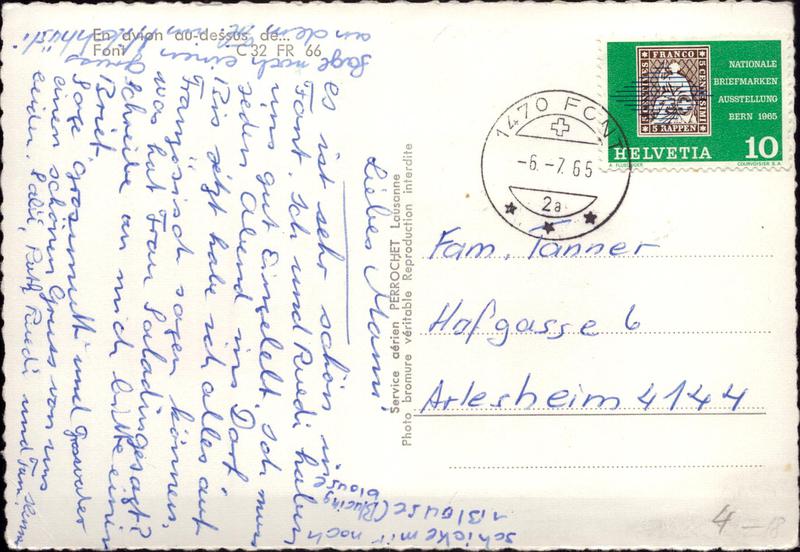 En avion au-dessus de...
Font C 32 FR 66
NATIONALE
BRIEFMARKEN
AUSSTELLUNG
BERN 1965
FRANCO
5 CENTESIMI
5 RAPPEN
HELVETIA 10
COURVOISIER S.A.
1470 FONT
-6.-7.65
2a
Fam. Tanner
Hofgasse 6
Arlesheim 4144
Service aérien PERROCHET Lausanne
Photo bromure véritable Reproduction interdite
Liebes Mami,
es ist sehr schön in
Font. Ich und Ruedi haben
uns gut Eingelebt. Ich muss
jeden Abend ins Dorf
Bis jetzt habe ich alles auf
Französisch sagen können,
was hat Frau Saladin gesagt?
schreibe an mich bitte einen
Brief.
Sage Grosmutti und Grosvater
einen schönen Gruss von uns
beiden. Ruth, Ruedi und
Sage noch einen Gruss
an dem
schicke mir noch
1 Blouse (Blucing
blouse
4 -18